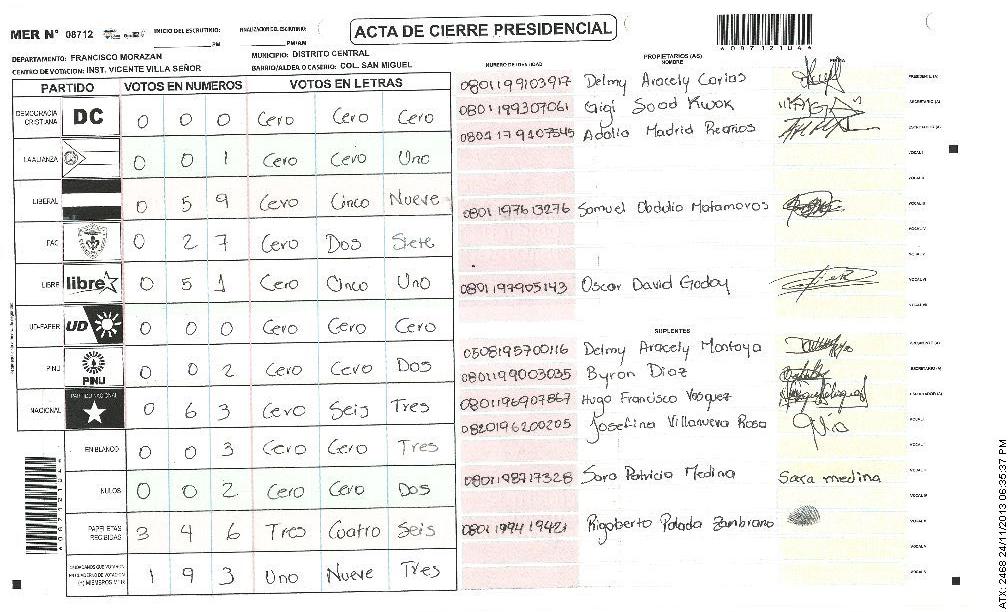 MER N° 08712
INICIO DEL ESCRUTINIO:
PM
FINALIZACION DEL ESCRUTINIO:
PM/AM
ACTA DE CIERRE PRESIDENCIAL
DEPARTAMENTO: FRANCISCO MORAZAN
MUNICIPIO: DISTRITO CENTRAL
CENTRO DE VOTACION: INST. VICENTE VILLA SEÑOR
BARRIO/ALDEA O CASERIO: COL. SAN MIGUEL
PARTIDO VOTOS EN NUMEROS VOTOS EN LETRAS
DEMOCRACIA CRISTIANA DC 0 0 0 Cero Cero Cero
LA ALIANZA 0 0 1 Cero Cero Uno
LIBERAL 0 5 9 Cero Cinco Nueve
PAC 0 2 7 Cero Dos Siete
LIBRE libre 0 5 1 Cero Cinco Uno
UD-FAPER UD 0 0 0 Cero Cero Cero
PINU PINU 0 0 2 Cero Cero Dos
NACIONAL PARTIDO NACIONAL 0 6 3 Cero Seis Tres
EN BLANCO 0 0 3 Cero Cero Tres
NULOS 0 0 2 Cero Cero Dos
PAPELETAS RECIBIDAS 3 4 6 Tres Cuatro Seis
1 9 3 Uno Nueve Tres
NUMERO DE IDENTIDAD
PROPIETARIOS (AS)
NOMBRE
FIRMA
0801199103917 Delmy Aracely Carias PRESIDENTE (A)
0801199307061 Gigi Sood Kwok SECRETARIO (A)
Adalio Madrid ESCRUTADOR (A)
VOCAL I
VOCAL II
0801197613276 Samuel Obdulio Matamoros VOCAL III
VOCAL IV
VOCAL V
0801197905143 Oscar David Godoy VOCAL VI
VOCAL VII
SUPLENTES
0508195700116 Delmy Aracely Montoya PRESIDENTE (A)
0801199003035 Byron Diaz SECRETARIO (A)
0801196907867 Hugo Francisco Vasquez ESCRUTADOR (A)
0820196200205 Josefina Villanueva Rosa VOCAL I
VOCAL II
Sara Patricia Medina Sara medina VOCAL III
VOCAL IV
Rigoberto Zambrano VOCAL V
ATX: 2468 24/11/2013 06:35:37 PM